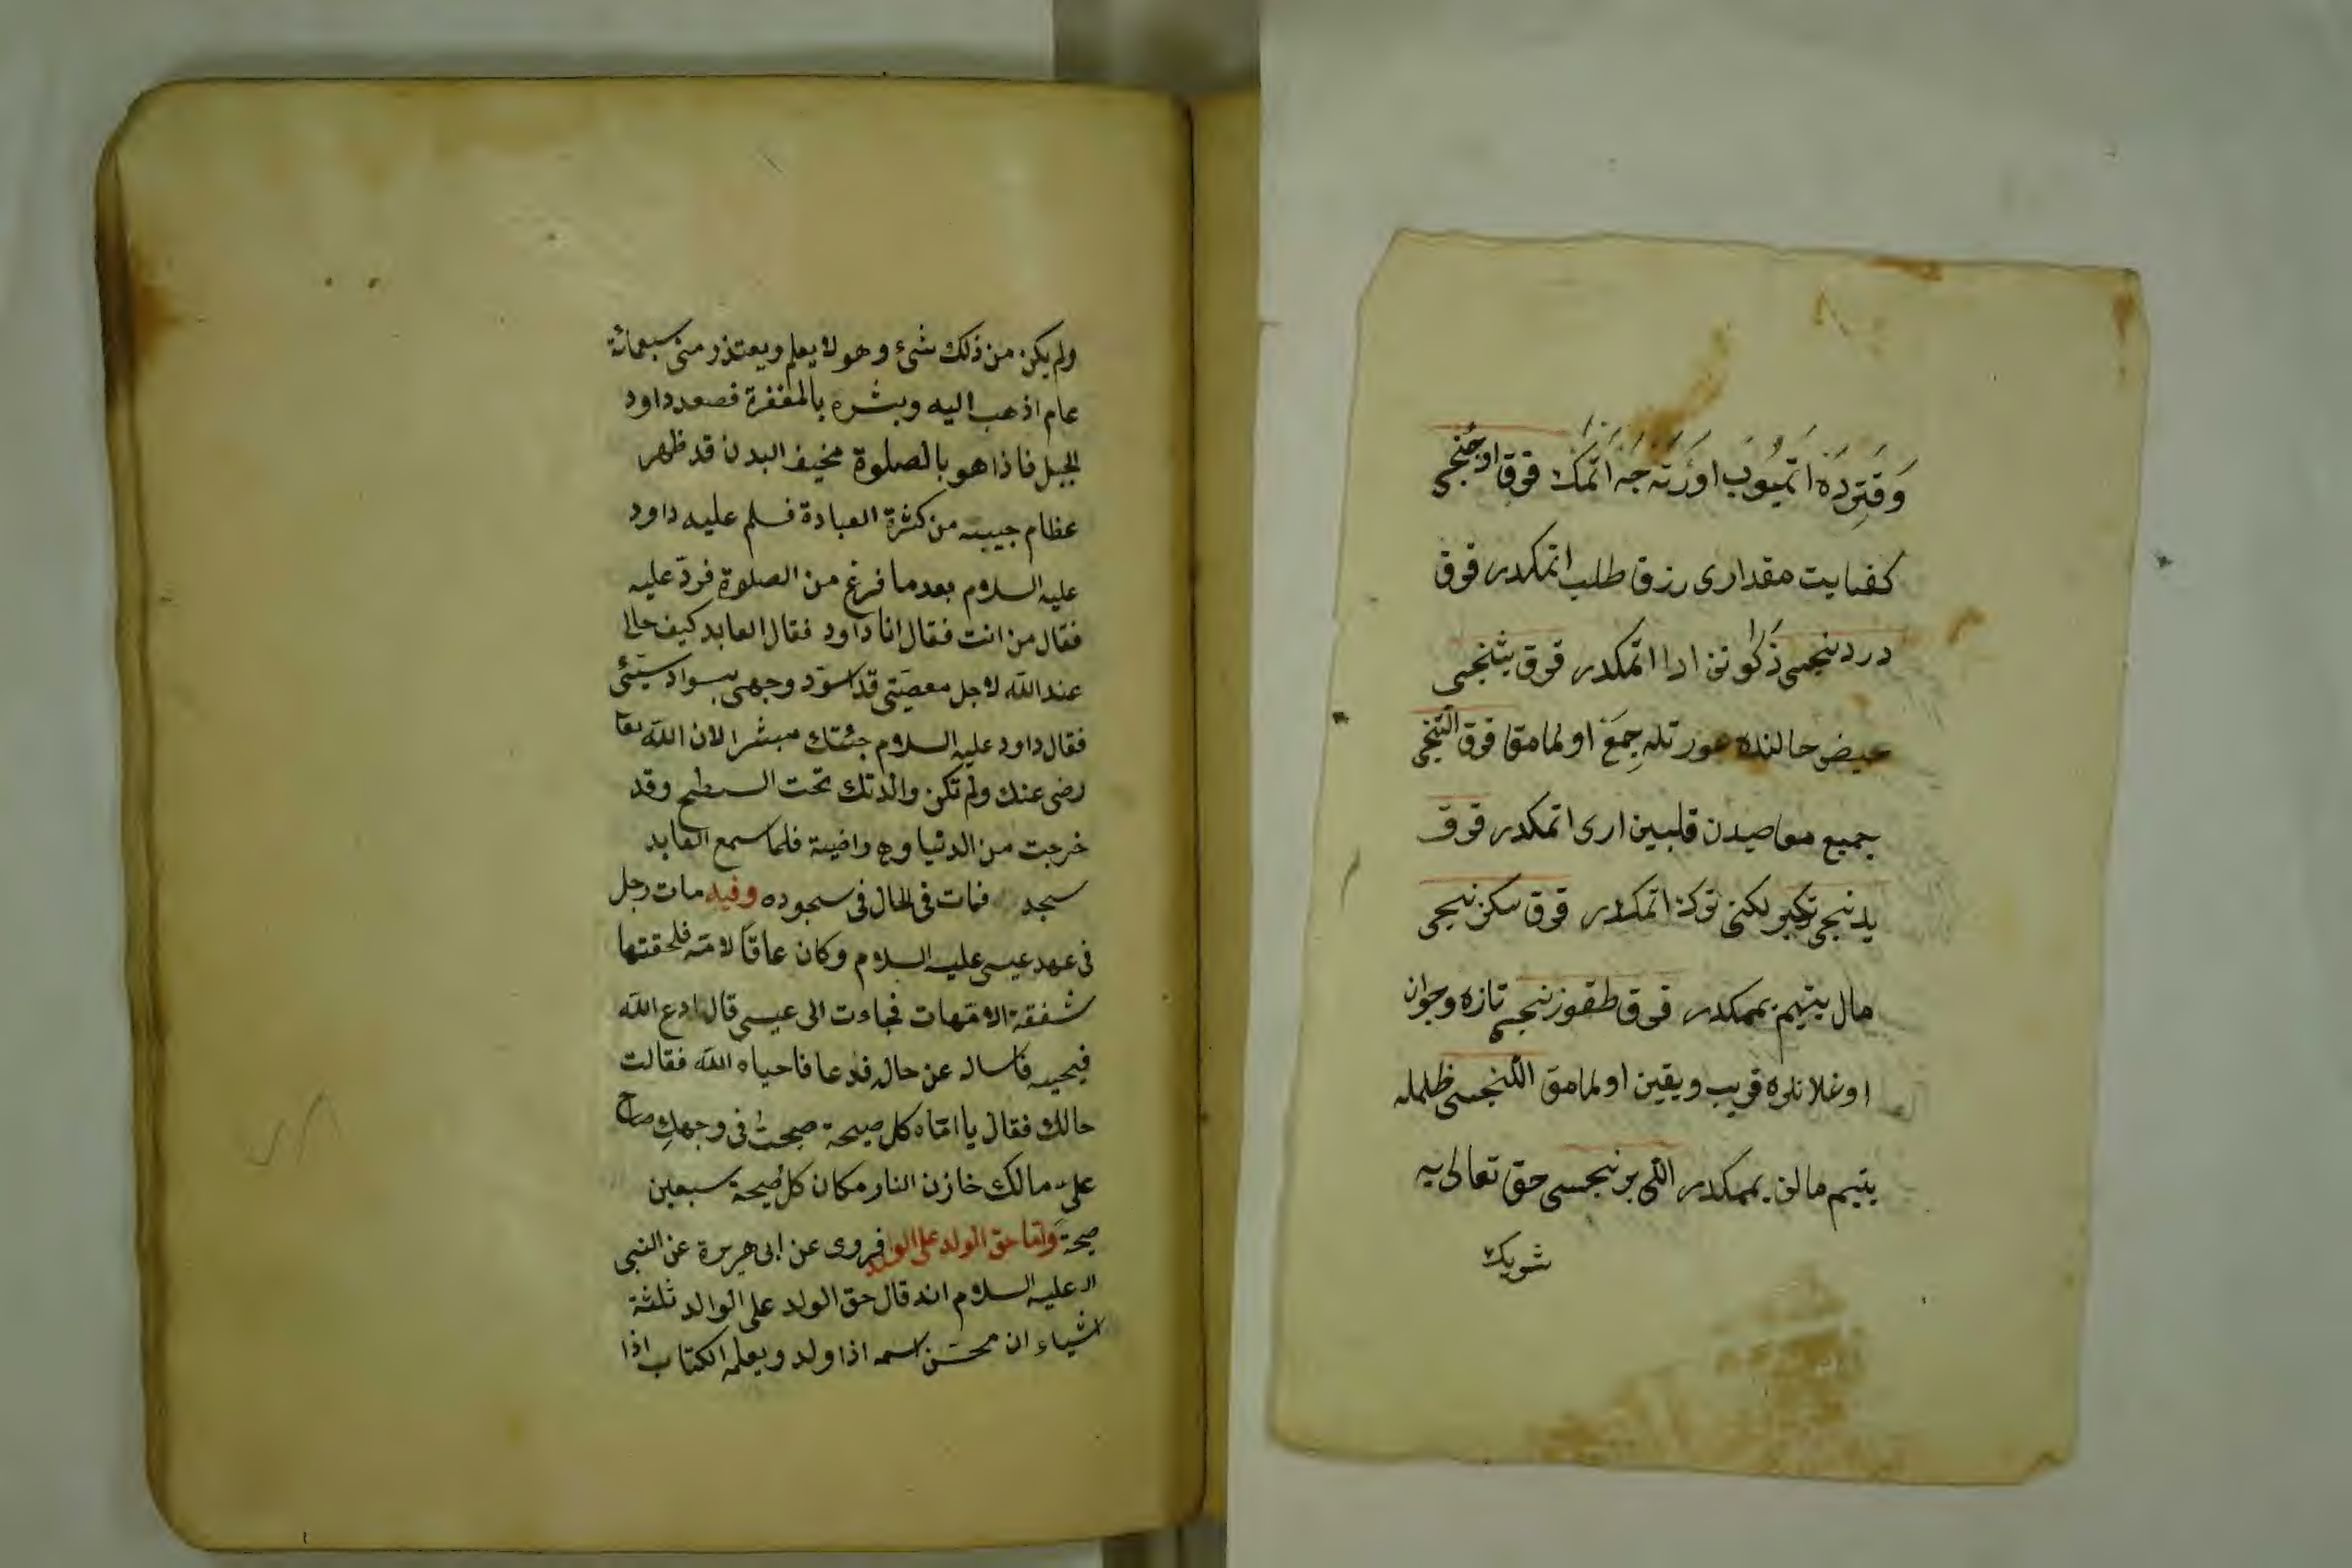 ولم يكن من ذلك شيء وهو لا يعلم ويعتذر منى سبعمائة
عام اذهب اليه وبشره بالمغفرة فصعد داود
الجبل فاذا هو بالصلوة نحيف البدن قد ظهر
عظام جبينه من كثرة العبادة فسلم عليه داود
عليه السلام بعد ما فرغ من الصلوة فردّ عليه
فقال من انت فقال انا داود فقال العابد كيف حالى
عند الله لاجل معصيتى قد اسوّد وجهى بسواد سيّئى
فقال داود عليه السلام جئتك مبشرا لان الله تعا
رضى عنك ولم تكن والدتك تحت السطح وقد
خرجت من الدنيا وهى راضية فلما سمع العابد
سجد فمات فى الحال فى سجوده وفيه مات رجل
فى عهد عيسى عليه السلام وكان عاقّا لامّه فلحقتها
شفقة الامّهات فجاءت الى عيسى قال ادع الله
فيحييه فاساله عن حاله فدعا فاحياه الله فقالت
حالك فقال يا امّاه كل صيحة صحت فى وجهك صاح
علىّ مالك خازن النار مكان كل صيحة سبعين
صيحة وامّا حق الولد على الوالد فروى عن ابى هريرة عن النبى
عليه السلام انه قال حق الولد على الوالد ثلثة
اشياء ان يحسّن اسمه اذا ولد ويعلمه الكتاب اذا
وَقتِردَه اتميُوب اورَته جَه اتمك قوق اوچُنجى
كفايت مقدارى رزق طلب اتمكدر قوق
دردنجى ذكوتن ادا اتمكدر قوق بشنجى
حيض حالنده عورتله جِمَع اولمامق قوق التنجى
جميع معاصيدن قلبين ارى اتمكدر قوق
يدنجى تكبرلكنى ترك اتمكدر قوق سكزنجى
مال يتيم يممكدر قوق طقوزنجى تازه وجوان
اوغلانلره قريب ويقين اولمامق اللنجى ظلمله
يتيم مالن يممكدر اللى برنجسى حق تعالى يه
شريك